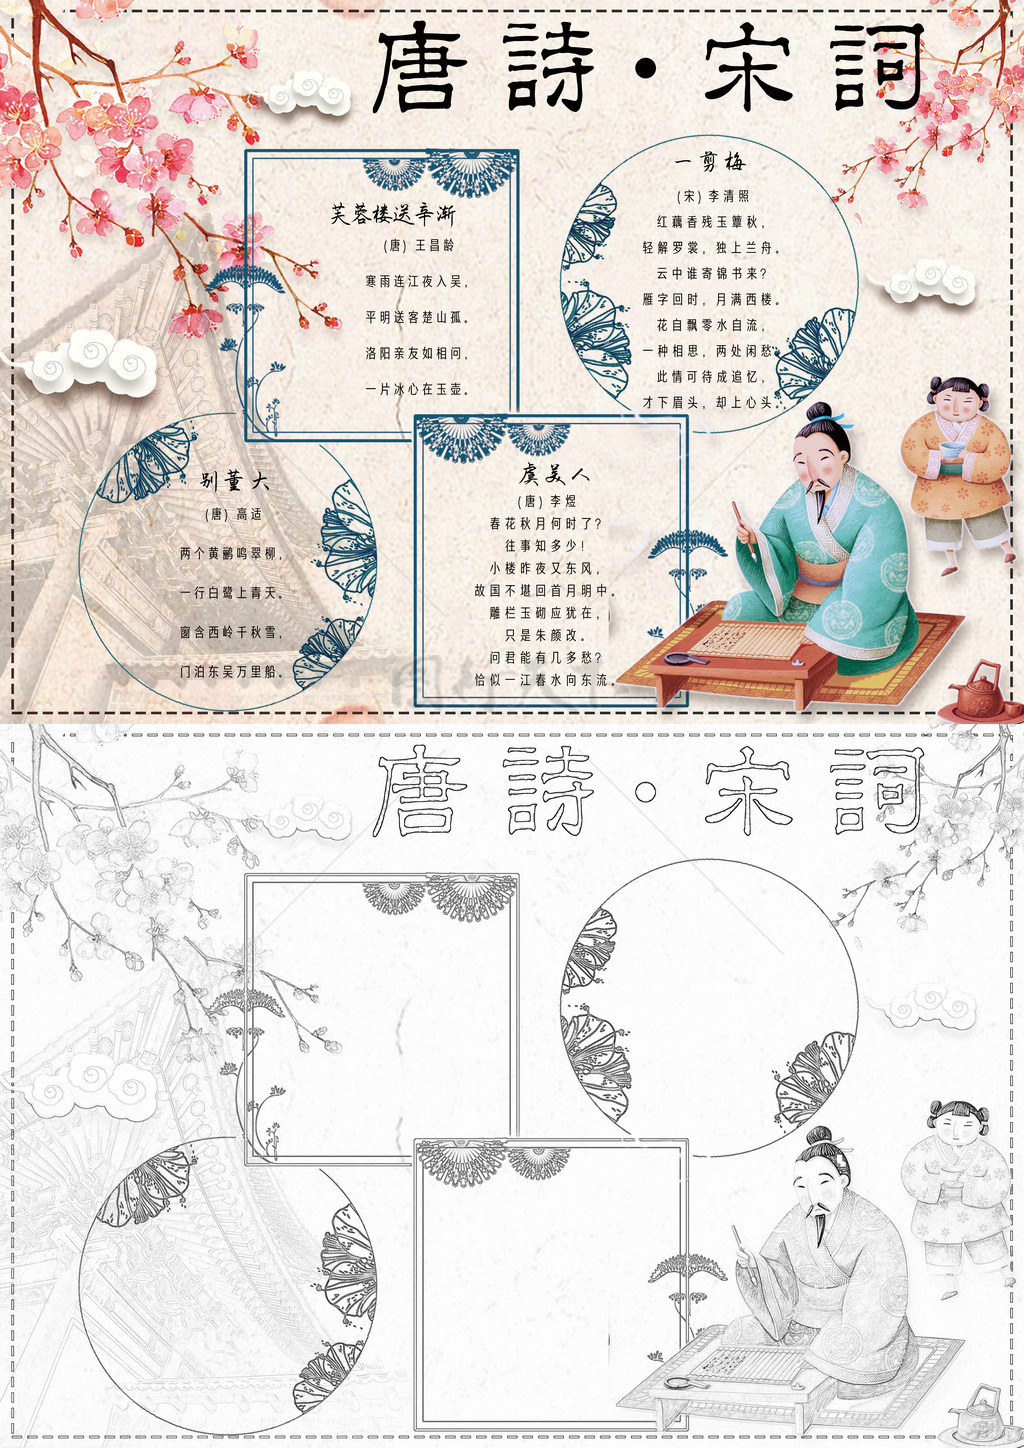 唐詩·宋詞
芙蓉楼送辛渐
(唐) 王昌龄
寒雨连江夜入吴，
平明送客楚山孤。
洛阳亲友如相问，
一片冰心在玉壶。
一剪梅
(宋) 李清照
红藕香残玉簟秋，
轻解罗裳，独上兰舟。
云中谁寄锦书来？
雁字回时，月满西楼。
花自飘零水自流，
一种相思，两处闲愁
此情可待成追忆，
才下眉头，却上心头。
别董大
(唐) 高适
两个黄鹂鸣翠柳，
一行白鹭上青天。
窗含西岭千秋雪，
门泊东吴万里船。
虞美人
(唐) 李煜
春花秋月何时了？
往事知多少！
小楼昨夜又东风，
故国不堪回首月明中。
雕栏玉砌应犹在，
只是朱颜改。
问君能有几多愁？
恰似一江春水向东流。
唐詩·宋詞